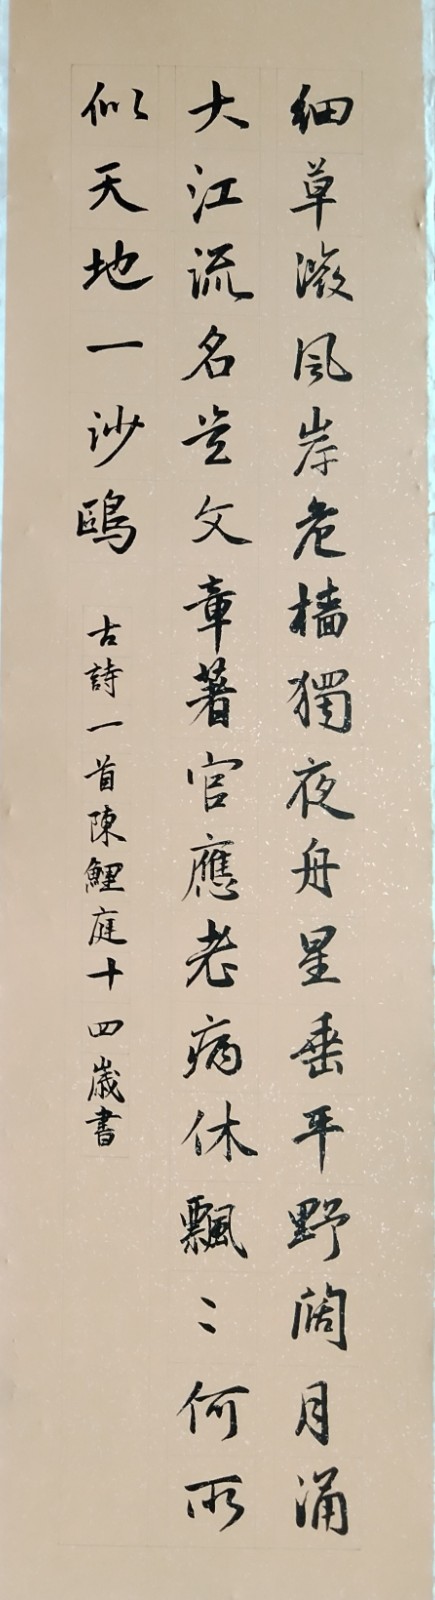 細草微風岸危檣獨夜舟星垂平野闊月涌
大江流名豈文章著官應老病休飄〻何所
似天地一沙鷗
古詩一首陳鯉庭十四歲書